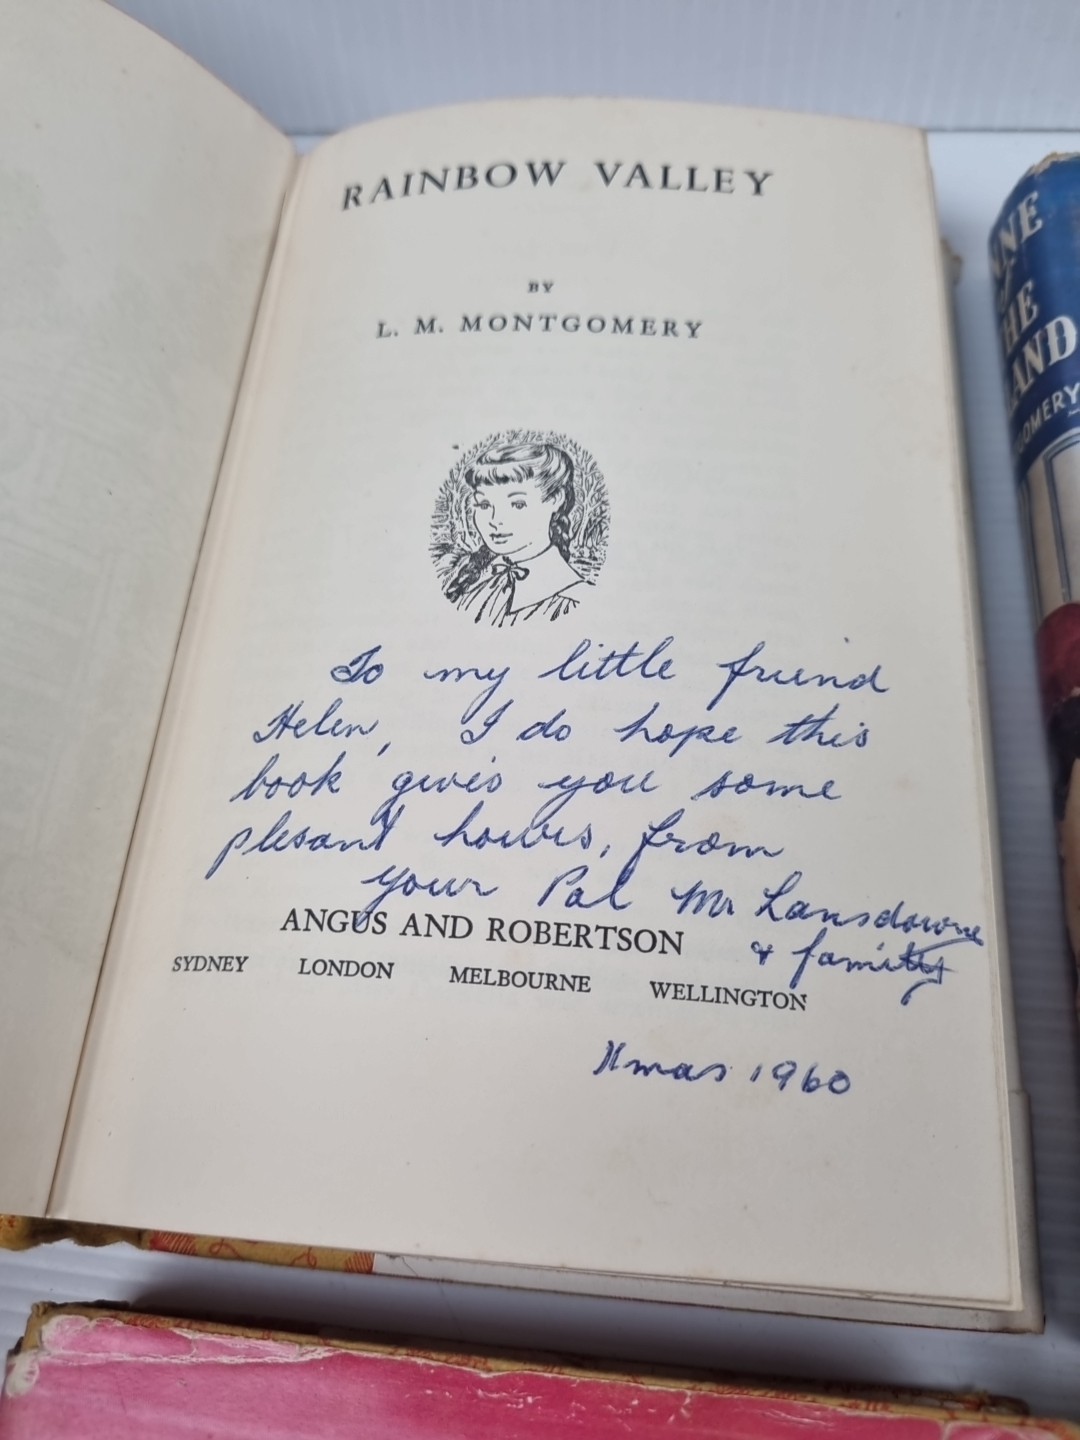 RAINBOW VALLEY
BY
L. M. MONTGOMERY
To my little friend
Helen, I do hope this
book gives you some
plesant hours, from
your Pal Mr Lansdowne
& family
ANGUS AND ROBERTSON
SYDNEY LONDON MELBOURNE WELLINGTON
Xmas 1960
NNE
of
HE
LAND
GOMERY